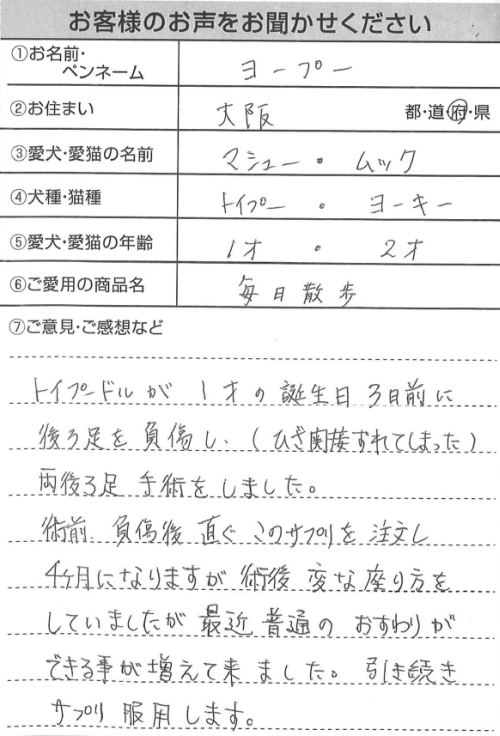 お客様のお声をお聞かせください
①お名前・
ペンネーム
ヨープー
②お住まい
大阪
都・道・府・県
③愛犬・愛猫の名前
マシュー・ムック
④犬種・猫種
トイプー・ヨーキー
⑤愛犬・愛猫の年齢
1才・2才
⑥ご愛用の商品名
毎日散歩
⑦ご意見・ご感想など
トイプードルが1才の誕生日3日前に
後ろ足を負傷し、(ひざ関接ずれてしまった)
両後ろ足手術をしました。
術前、負傷後直ぐこのサプリを注文し
4ヶ月になりますが術後変な座り方を
していましたが最近普通のおすわりが
できる事が増えて来ました。引き続き
サプリ服用します。